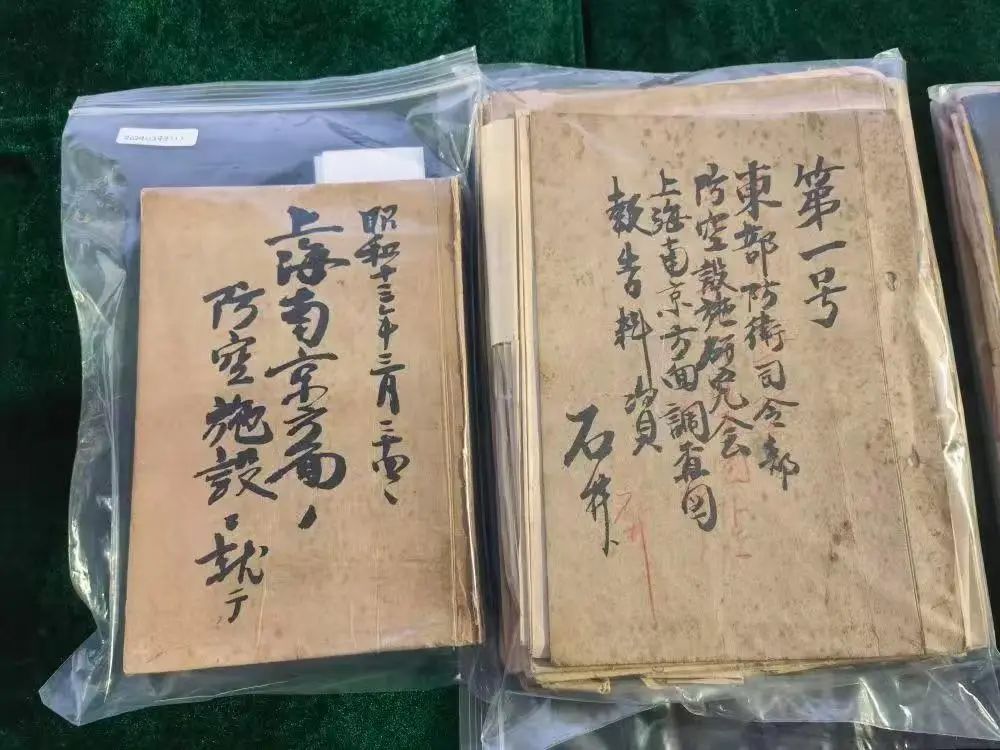 昭和十三年三月
上海南京方面ノ
防空施設ニ就テ
第一号
東部防衛司令部
防空設施研究会
上海南京方面調査団
報告料
石井